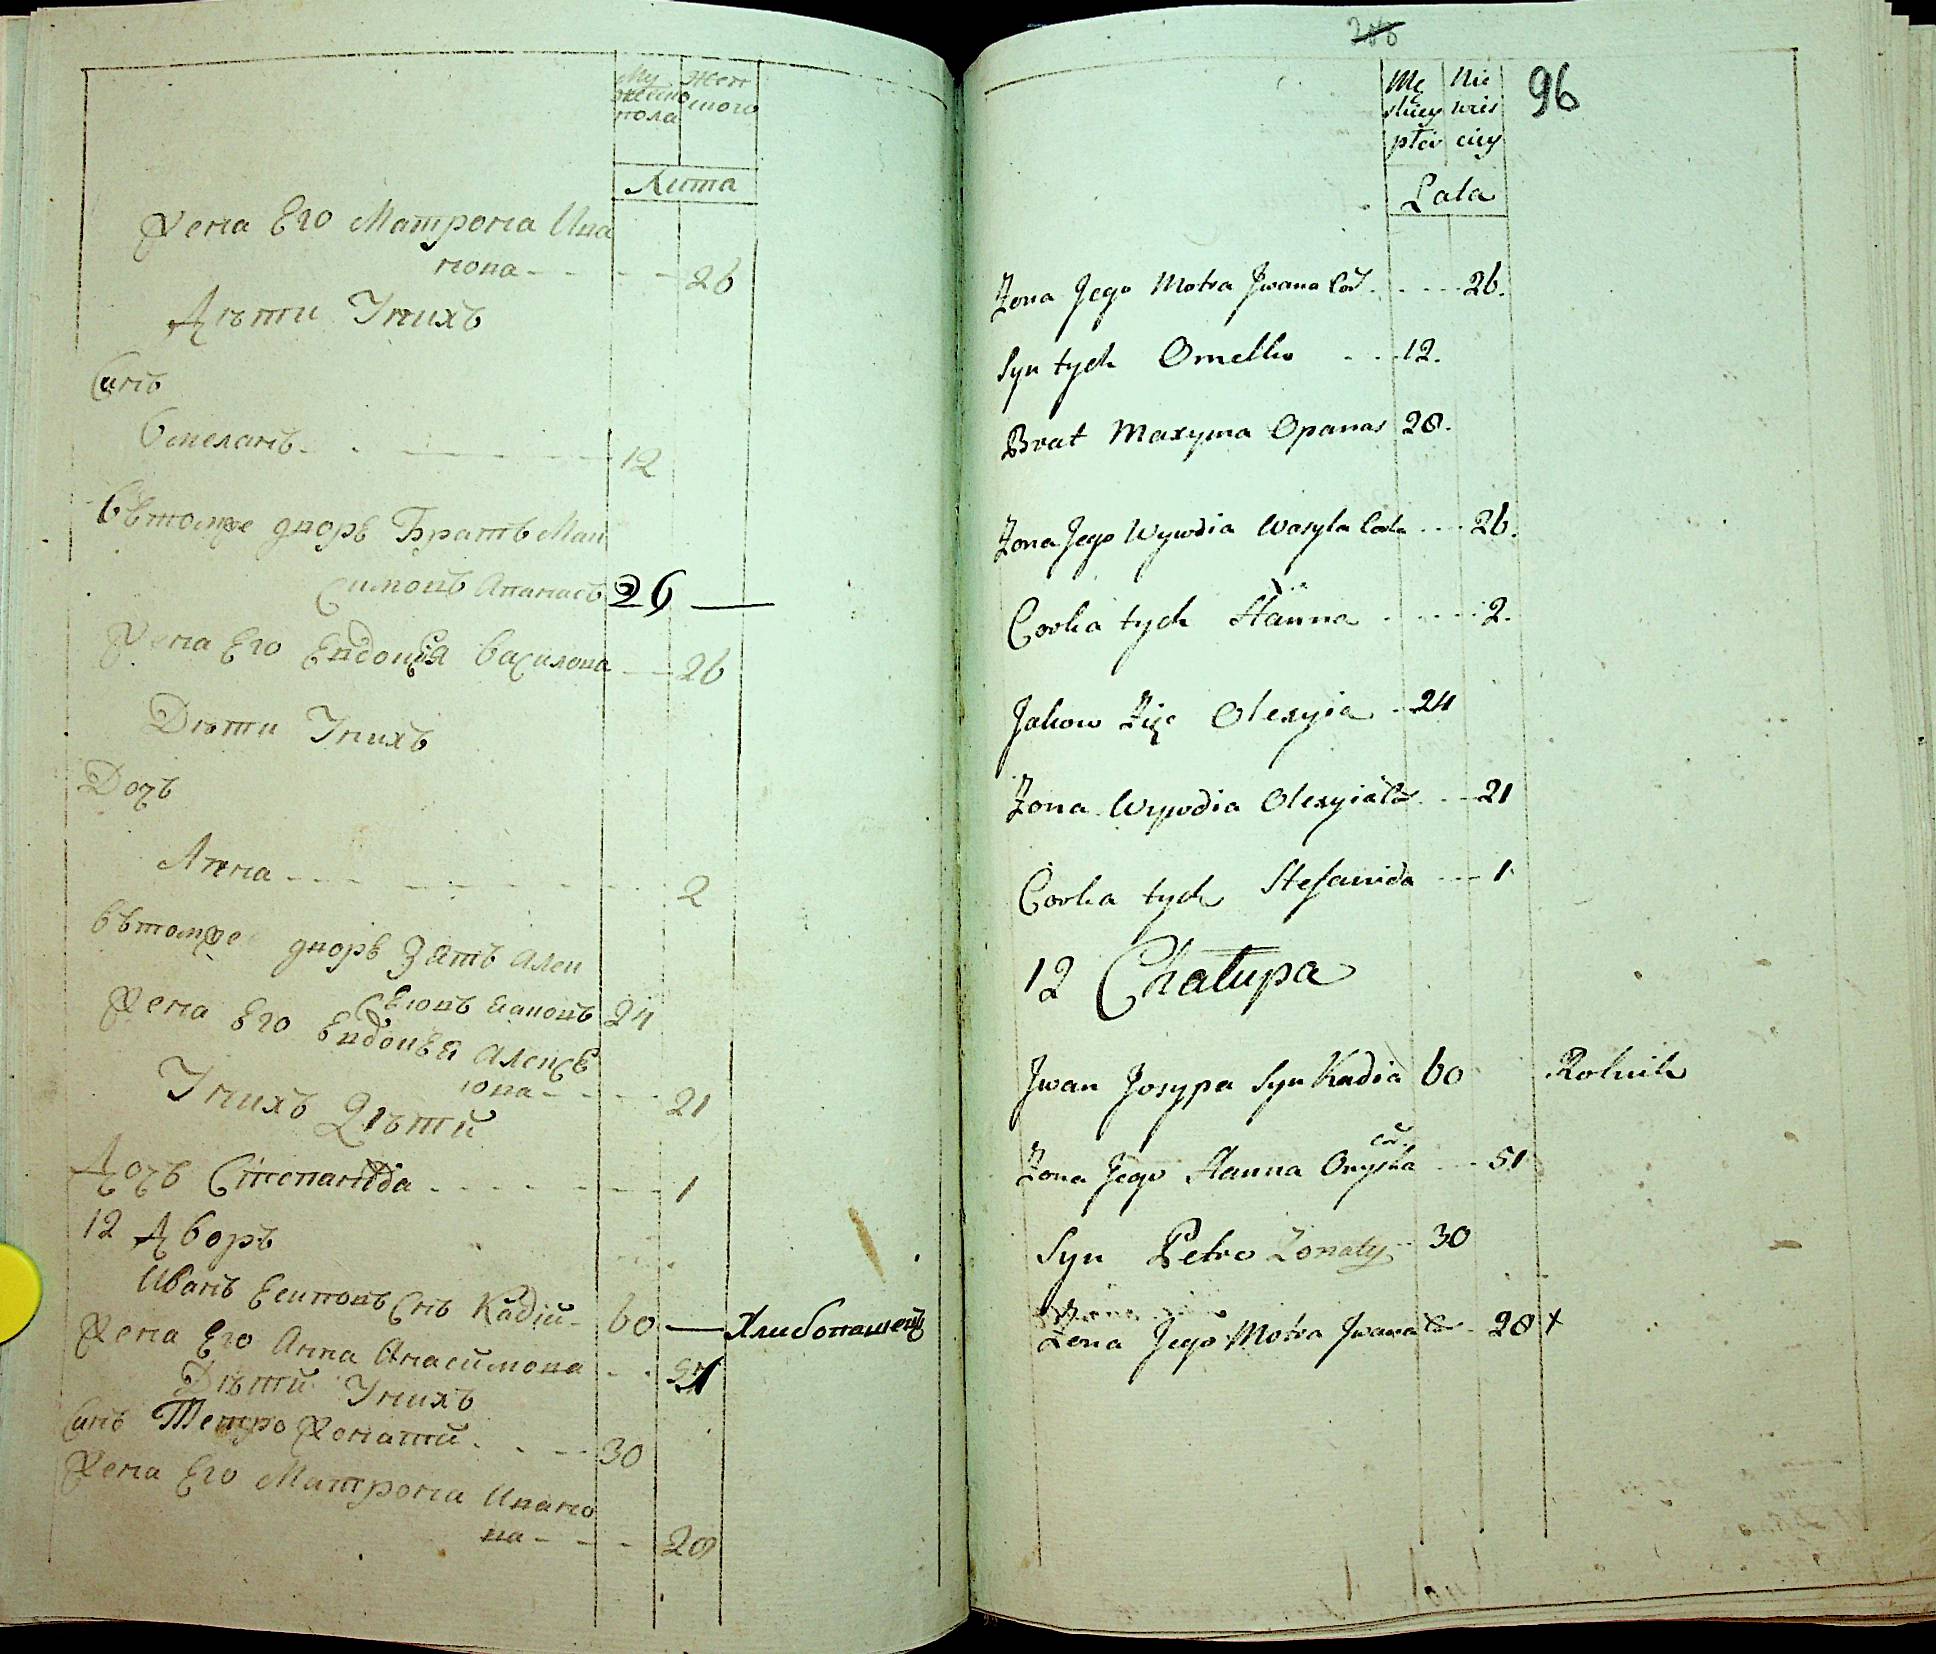 Му Жен
жеско ского
пола
Лита
Жена Его Матрона Ива
нова - - - - 26
Дѣти У нихъ
Синъ
Омеланъ - - - 12
Вътомже дворѣ Братъ Мак
симовъ Апанасъ 26 —
Жена Его Евдокія Василова - - 26
Дѣти У нихъ
Дочъ
Анна - - - - - 2
Вътомже дворѣ Зять Алек
сѣювъ Яковъ 24
Жена Его Евдокѣя Алексѣ
юва - - - 21
У нихъ Дѣтй
Дочъ Степанида - - - - - 1
12 Дворъ
Иванъ Есиповъ Снъ Кадій - 60 — Хлибопашецъ
Жена Его Анна Анасимова - - 51
Дѣтй У нихъ
Синъ Петро Женатй - - - 30
Жена Его Матрона Ивано
ва - - - 28
96
Mę Nie
skiey wies
płci ciey
Lata
Żona Jego Motra Jwana Cór. - - - - 26.
Syn tych Omelko - - - 12.
Brat Maxyma Opanas 28.
Żona Jego Wywdia Wasyla Córka - - - 26.
Corka tych Hanna - - - - 2.
Jakow Zięć Olexyia - - 24
Żona Wywdia Olexyia Cór. - - - 21
Corka tych Stefanida - - - 1
12 Chałupa
Jwan Josypa Syn Kadia 60 Rolnik
Żona Jego Hanna Onyska cór. - - - 51
Syn Petro Żonaty - 30
Żona Jego Motra Jwana Cór - 28 +